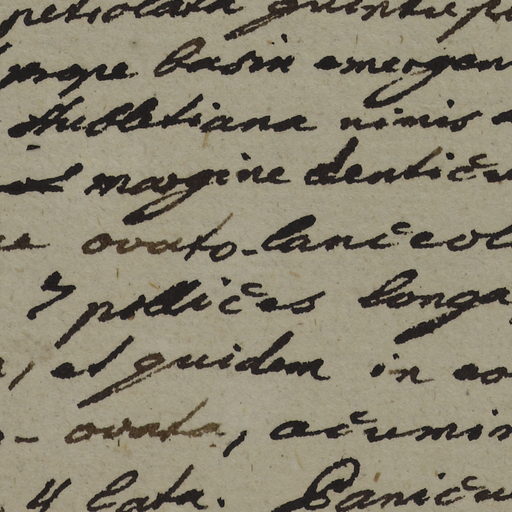 petiolata quintuplo
prope basin emergen
Aubletiana nimis
margine denticu
ovato-lanceol
7 pollices longa
, et quidem in eo
- ovata, acumin
4 lata. Panicu